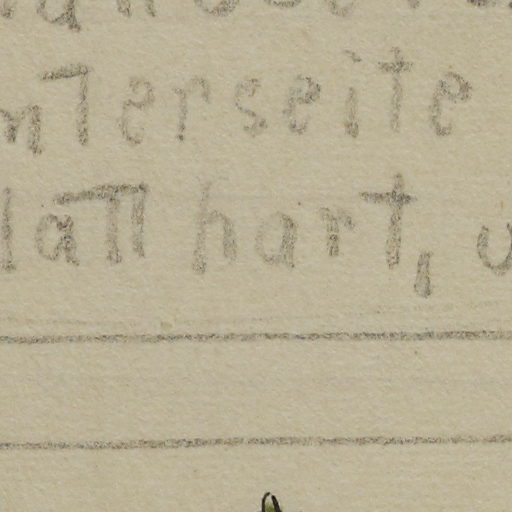 nterseite
latt hart, u